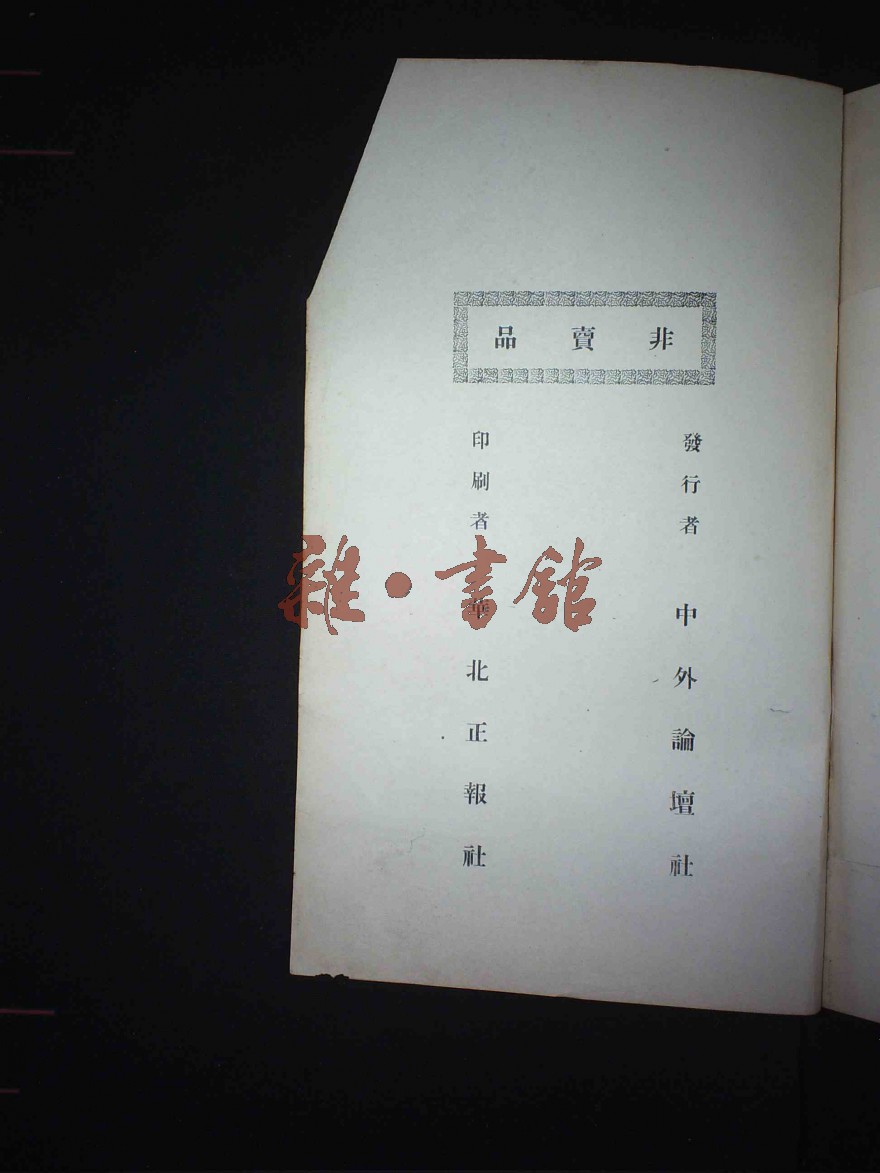 非賣品
發行者 中外論壇社
印刷者 華北正報社
雜·書館